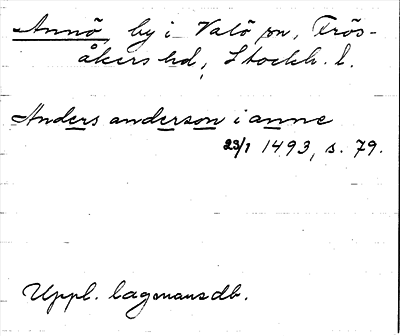 Annö by i Valö sn, Frös-
åkers hd, Stockh. l.
Anders anderson i anne
23/1 1493, s. 79.
Uppl. lagmansdb.